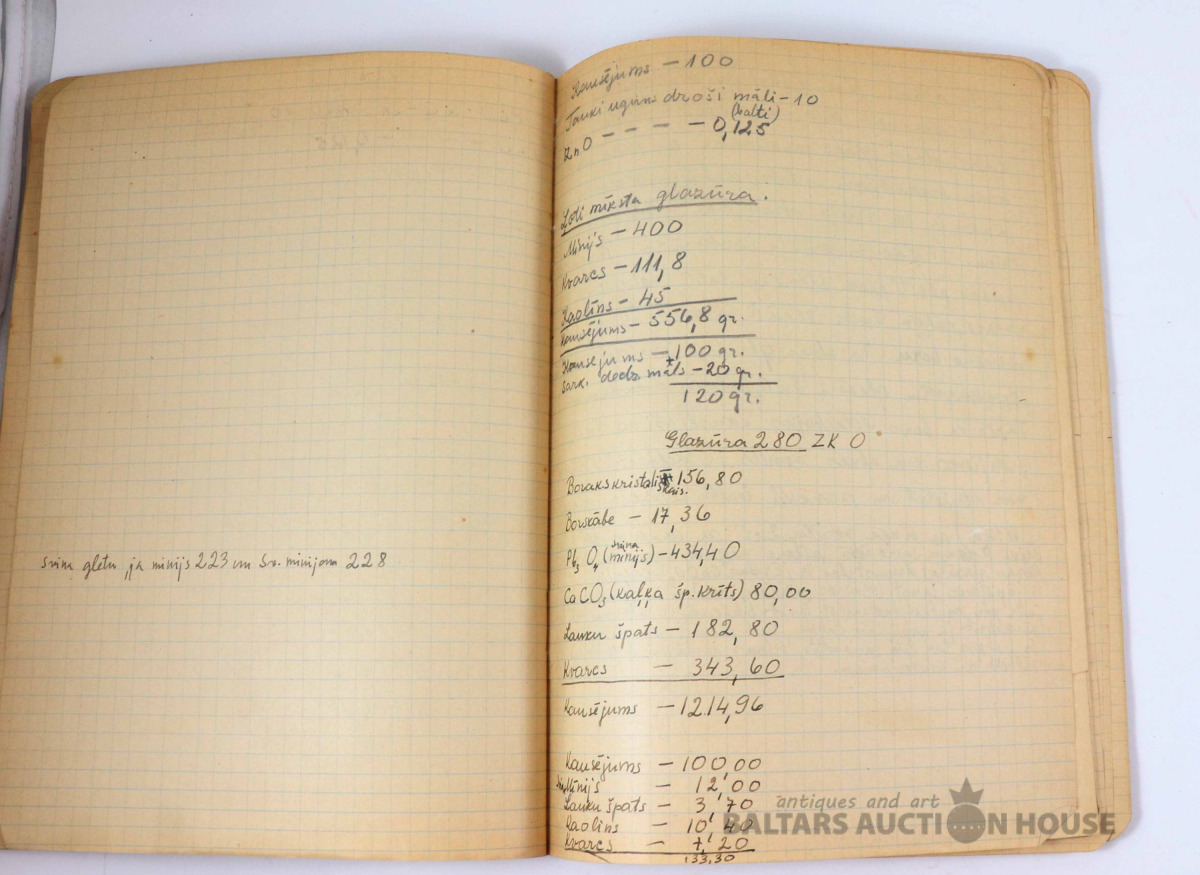 svina gletu, ja minijs 223 un sv. minijam 228
Kausējums - 100
Tauki uguns droši māli - 10
(balti)
ZnO - - - - 0,125
Ļoti mīksta glazūra.
Minijs - 400
Kvarcs - 111,8
Kaolīns - 45
Kausējums - 556,8 gr.
Kausējums - 100 gr.
sark. dedz. māls + - 20 gr.
120 gr.
Glazūra 280 ZK 0
Borakskristali 156,80
Borskābe - 17,36
Pb3O4 (svina minijs) - 434,40
CaCO3 (kaļķa šp. krīts) 80,00
Lauku špats - 182,80
Kvarcs - 343,60
Kausējums - 1214,96
Kausējums - 100,00
Mīnijs - 12,00
Lauku špats - 3,70
Kaolins - 10,40
Kvarcs - 7,20
133,30
antiques and art
BALTARS AUCTION HOUSE